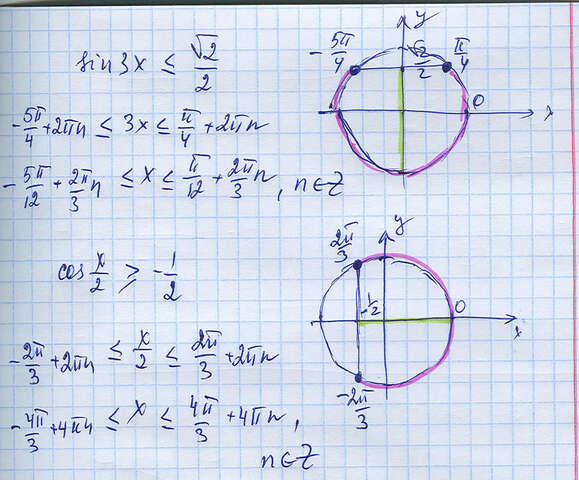 sin 3x ≤ √2/2
-5π/4 + 2πn ≤ 3x ≤ π/4 + 2πn
-5π/12 + 2π/3 n ≤ x ≤ π/12 + 2π/3 n, n∈Z
y
-5π/4
√2/2
π/4
0
x
cos x/2 ≥ -1/2
-2π/3 + 2πn ≤ x/2 ≤ 2π/3 + 2πn
-4π/3 + 4πn ≤ x ≤ 4π/3 + 4πn,
n∈Z
y
2π/3
-1/2
0
x
-2π/3